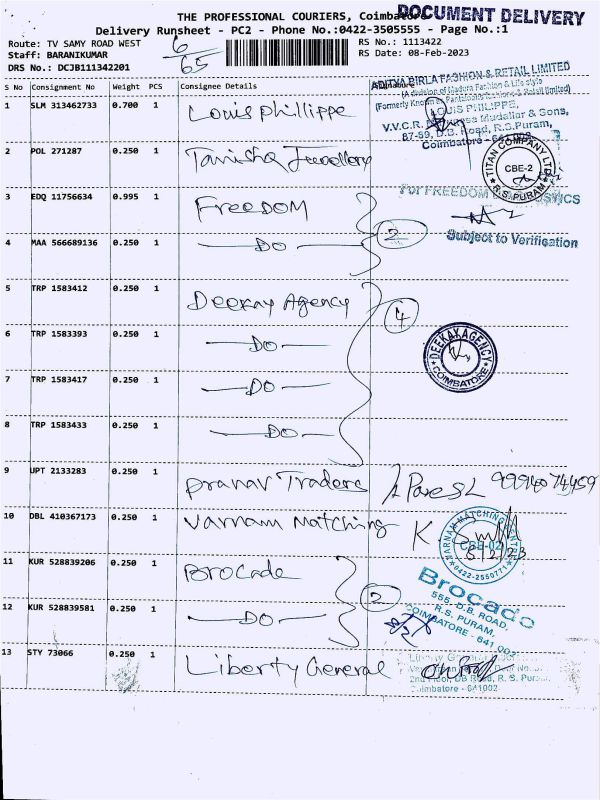 THE PROFESSIONAL COURIERS, Coimbatore
DOCUMENT DELIVERY
Delivery Runsheet - PC2 - Phone No.:0422-3505555 - Page No.:1
Route: TV SAMY ROAD WEST
6/65
RS No.: 1113422
Staff: BARANIKUMAR
RS Date: 08-Feb-2023
DRS No.: DCJB111342201
S No Consignment No Weight PCS Consignee Details
ADITYA BIRLA FASHION & RETAIL LIMITED
(A division of Madura Fashion & Life style
(Formerly Known as Pantaloons Fashions & Retail limited)
LOUIS PHILIPPE,
V.V.C.R. Mudaliar & Sons,
87-59, D.B. Road, R.S.Puram,
Coimbatore - 641 002
1 SLM 313462733 0.700 1 Louis Phillippe
2 POL 271287 0.250 1 Tanishq Jewellery
TITAN COMPANY LTD
CBE-2
R.S. PURAM
3 EDQ 11756634 0.995 1 FREEDOM
For FREEDOM
2
4 MAA 566689136 0.250 1 —DO—
Subject to Verification
5 TRP 1583412 0.250 1 Deekay Agency
4
6 TRP 1583393 0.250 1 —DO—
DEEKAY AGENCY
COIMBATORE
7 TRP 1583417 0.250 1 —DO—
8 TRP 1583433 0.250 1 —DO—
9 UPT 2133283 0.250 1 Pranav Traders
10 DBL 410367173 0.250 1 Varnam Matching K
VARNAM MATCHING CENTRE
CBE-02
0422-2550771
8/2/23
11 KUR 528839206 0.250 1 Brocade
2
Brocade
555, D.B. ROAD,
R.S. PURAM,
COIMBATORE - 641 002
12 KUR 528839581 0.250 1 —DO—
13 STY 73066 0.250 1 Liberty General
2nd Floor, DB Road, R. S. Puram,
Coimbatore - 641002